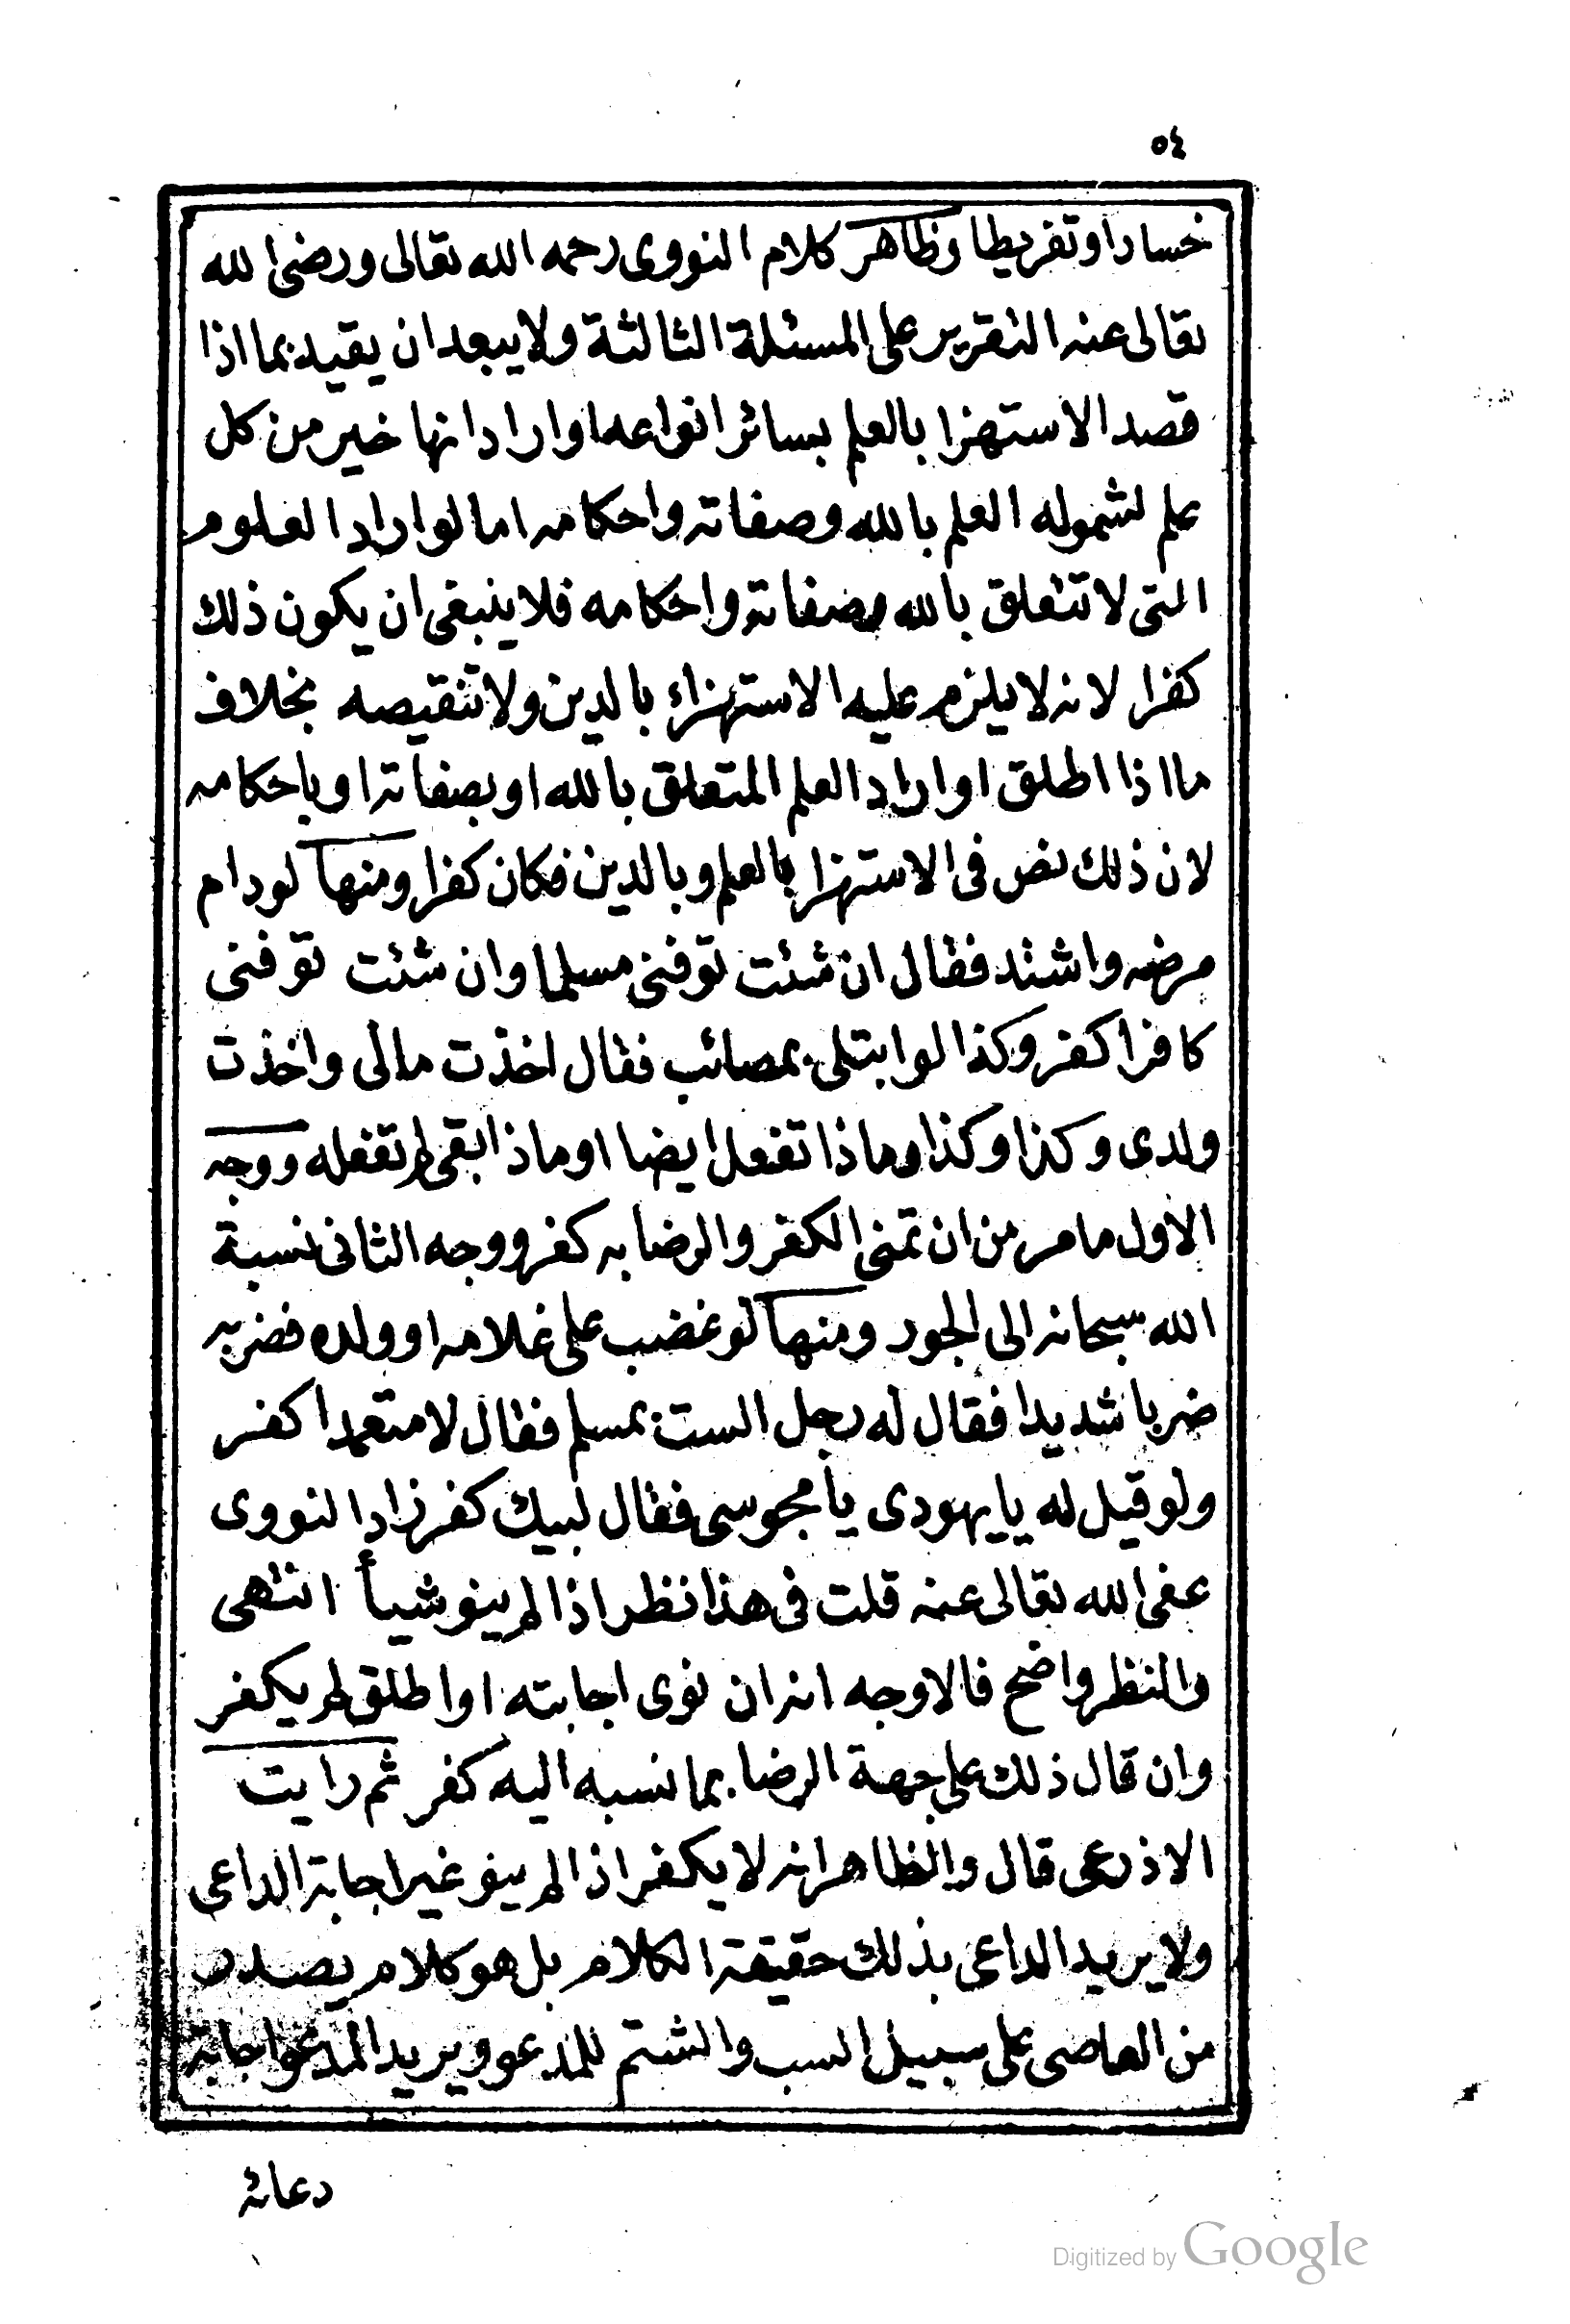 ٥٤
خسارا وتفريطا وظاهر كلام النووى رحمه الله تعالى ورضى الله
تعالى عنه التقرير على المسئلة الثالثة ولا يبعد ان يقيد بما اذا
قصد الاستهزا بالعلم بسائر انواعه او اراد انها خير من كل
علم لشموله العلم بالله وصفاته واحكامه اما لو اراد العلوم
التى لا تتعلق بالله وصفاته واحكامه فلا ينبغى ان يكون ذلك
كفرا لانه لا يلزم عليه الاستهزاء بالدين ولا تنقيصه بخلاف
ما اذا اطلق او اراد العلم المتعلق بالله او بصفاته او باحكامه
لان ذلك نص فى الاستهزا بالعلم وبالدين فكان كفرا ومنها لو دام
مرضه واشتد فقال ان شئت توفنى مسلما وان شئت توفنى
كافرا كفر وكذا لو ابتلى بمصائب فقال اخذت مالى واخذت
ولدى وكذا وكذا وماذا تفعل ايضا او ماذا بقى لم تفعله ووجه
الاول ما مر من ان تمنى الكفر والرضا به كفر ووجه الثانى نسبة
الله سبحانه الى الجور ومنها لو غضب على غلامه او ولده فضربه
ضربا شديدا فقال له رجل الست بمسلم فقال لا متعمدا كفر
ولو قيل له يا يهودى يا مجوسى فقال لبيك كفر زاد النووى
عفى الله تعالى عنه قلت فى هذا نظر اذا لم ينو شيأ انتهى
والنظر واضح فالاوجه انه ان نوى اجابته او اطلق لم يكفر
وان قال ذلك على جهة الرضا بما نسبه اليه كفر ثم رايت
الاذرعى قال والظاهر انه لا يكفر اذا لم ينو غير اجابة الداعى
ولا يريد الداعى بذلك حقيقة الكلام بل هو كلام يصدر
من العاصى على سبيل السب والشتم للمدعو ويريد المدعو اجابة
دعائه
Digitized by Google